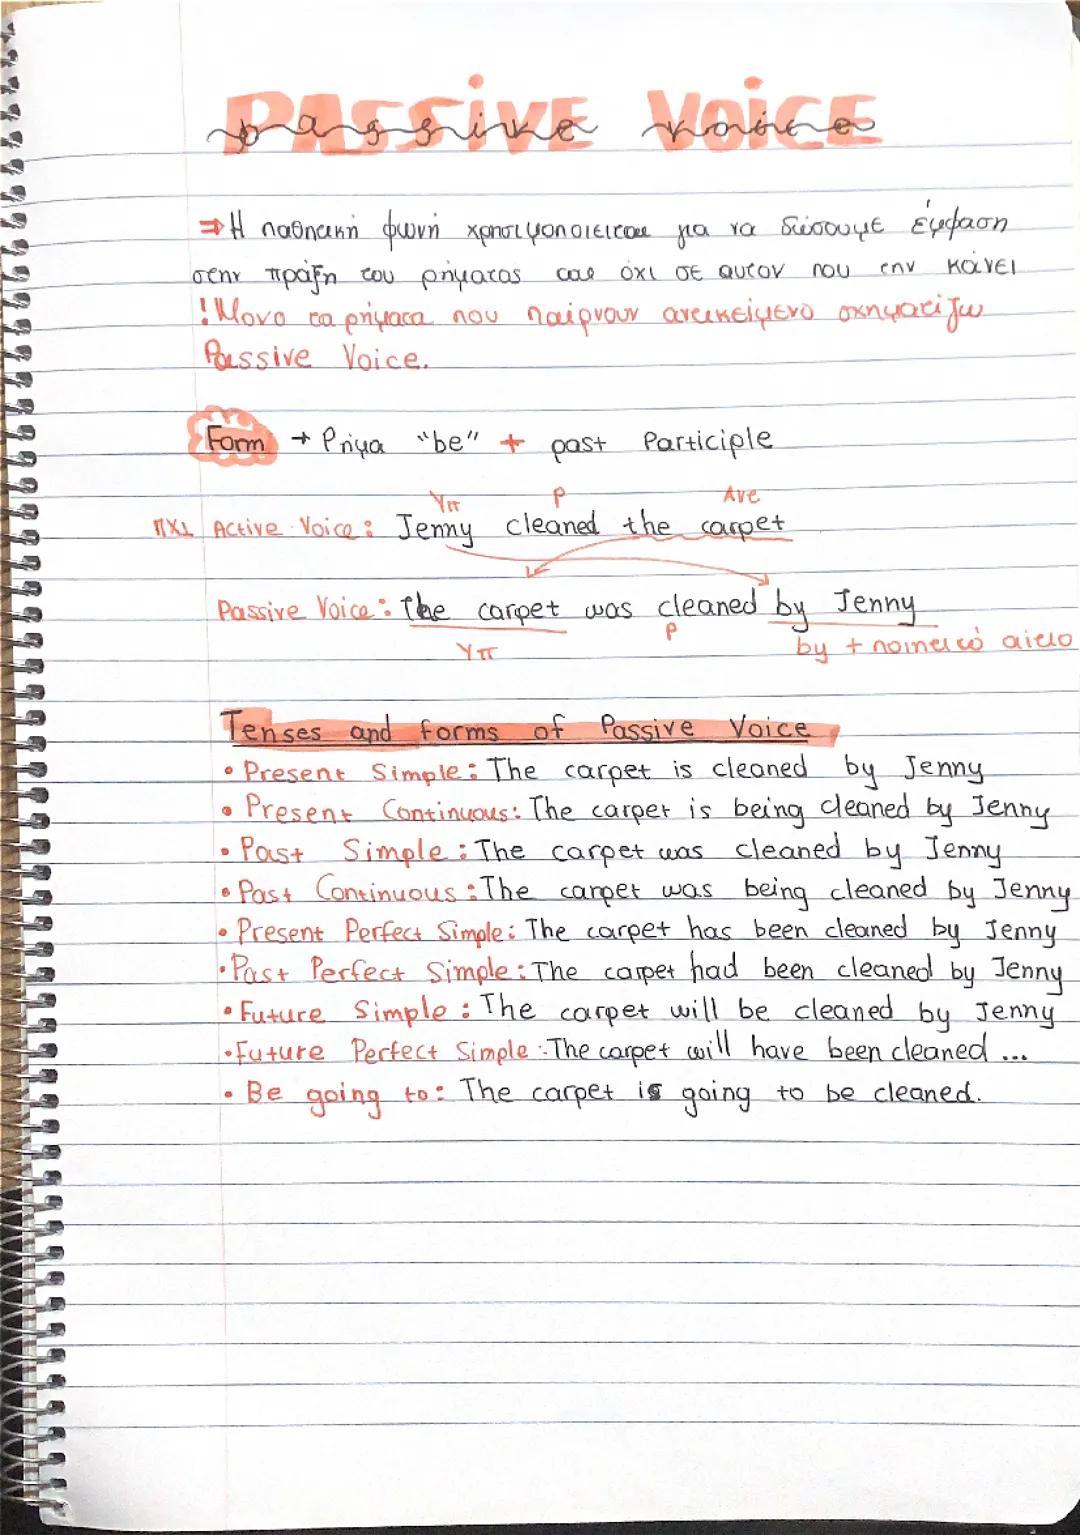 PASSIVE VOICE
passive voice
⇒ Η παθητική φωνή χρησιμοποιείται για να δώσουμε έμφαση
στην πράξη του ρήματος και όχι σε αυτόν που την κάνει
! Μόνο τα ρήματα που παίρνουν αντικείμενο σχηματίζω
Passive Voice.
Form → Ρήμα "be" + past Participle
Υπ Ρ Αντ
πχ1 Active Voice: Jenny cleaned the carpet
Passive Voice: The carpet was cleaned by Jenny
Υπ Ρ by + ποιητικό αίτιο
Tenses and forms of Passive Voice
• Present Simple: The carpet is cleaned by Jenny
• Present Continuous: The carpet is being cleaned by Jenny
• Past Simple: The carpet was cleaned by Jenny
• Past Continuous: The carpet was being cleaned by Jenny
• Present Perfect Simple: The carpet has been cleaned by Jenny
• Past Perfect Simple: The carpet had been cleaned by Jenny
• Future Simple: The carpet will be cleaned by Jenny
• Future Perfect Simple: The carpet will have been cleaned ...
• Be going to: The carpet is going to be cleaned.